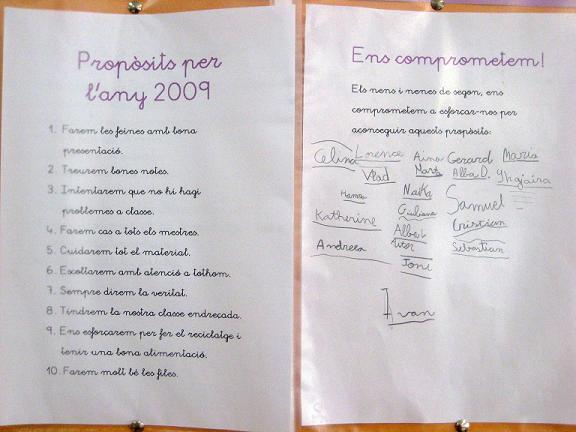 Propòsits per
l'any 2009
1. Farem les feines amb bona
presentació.
2. Treurem bones notes.
3. Intentarem que no hi hagi
problemes a classe.
4. Farem cas a tots els mestres.
5. Cuidarem tot el material.
6. Escoltarem amb atenció a tothom.
7. Sempre direm la veritat.
8. Tindrem la nostra classe endreçada.
9. Ens esforçarem per fer el reciclatge i
tenir una bona alimentació.
10. Farem molt bé les files.
Ens comprometem!
Els nens i nenes de segon, ens
comprometem a esforçar-nos per
aconseguir aquests propòsits:
Celina Lorence Aina Gerard Maria
Vlad Marta Alba D. Yhajaira
Hamza Maike Samuel
Katherine Giuliana Cristian
Albert
Andreea Sebastian
Joni
Ivan